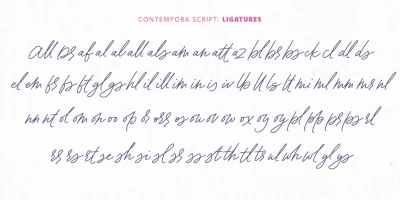 CONTEMPORA SCRIPT: LIGATURES
all Dr af al al all als am an att az bl br bs ck cl dl ds
el em fr fs ft gl gs hl il ill im in is iv llb ll ls lt mi ml mm mr nl
nn nt ol om on oo op or orr os ou ov ow ox oy oy pl plp pr ps rl
rr rs rt se sh si sl sr ss st th tl tr ul wh wl gl ys